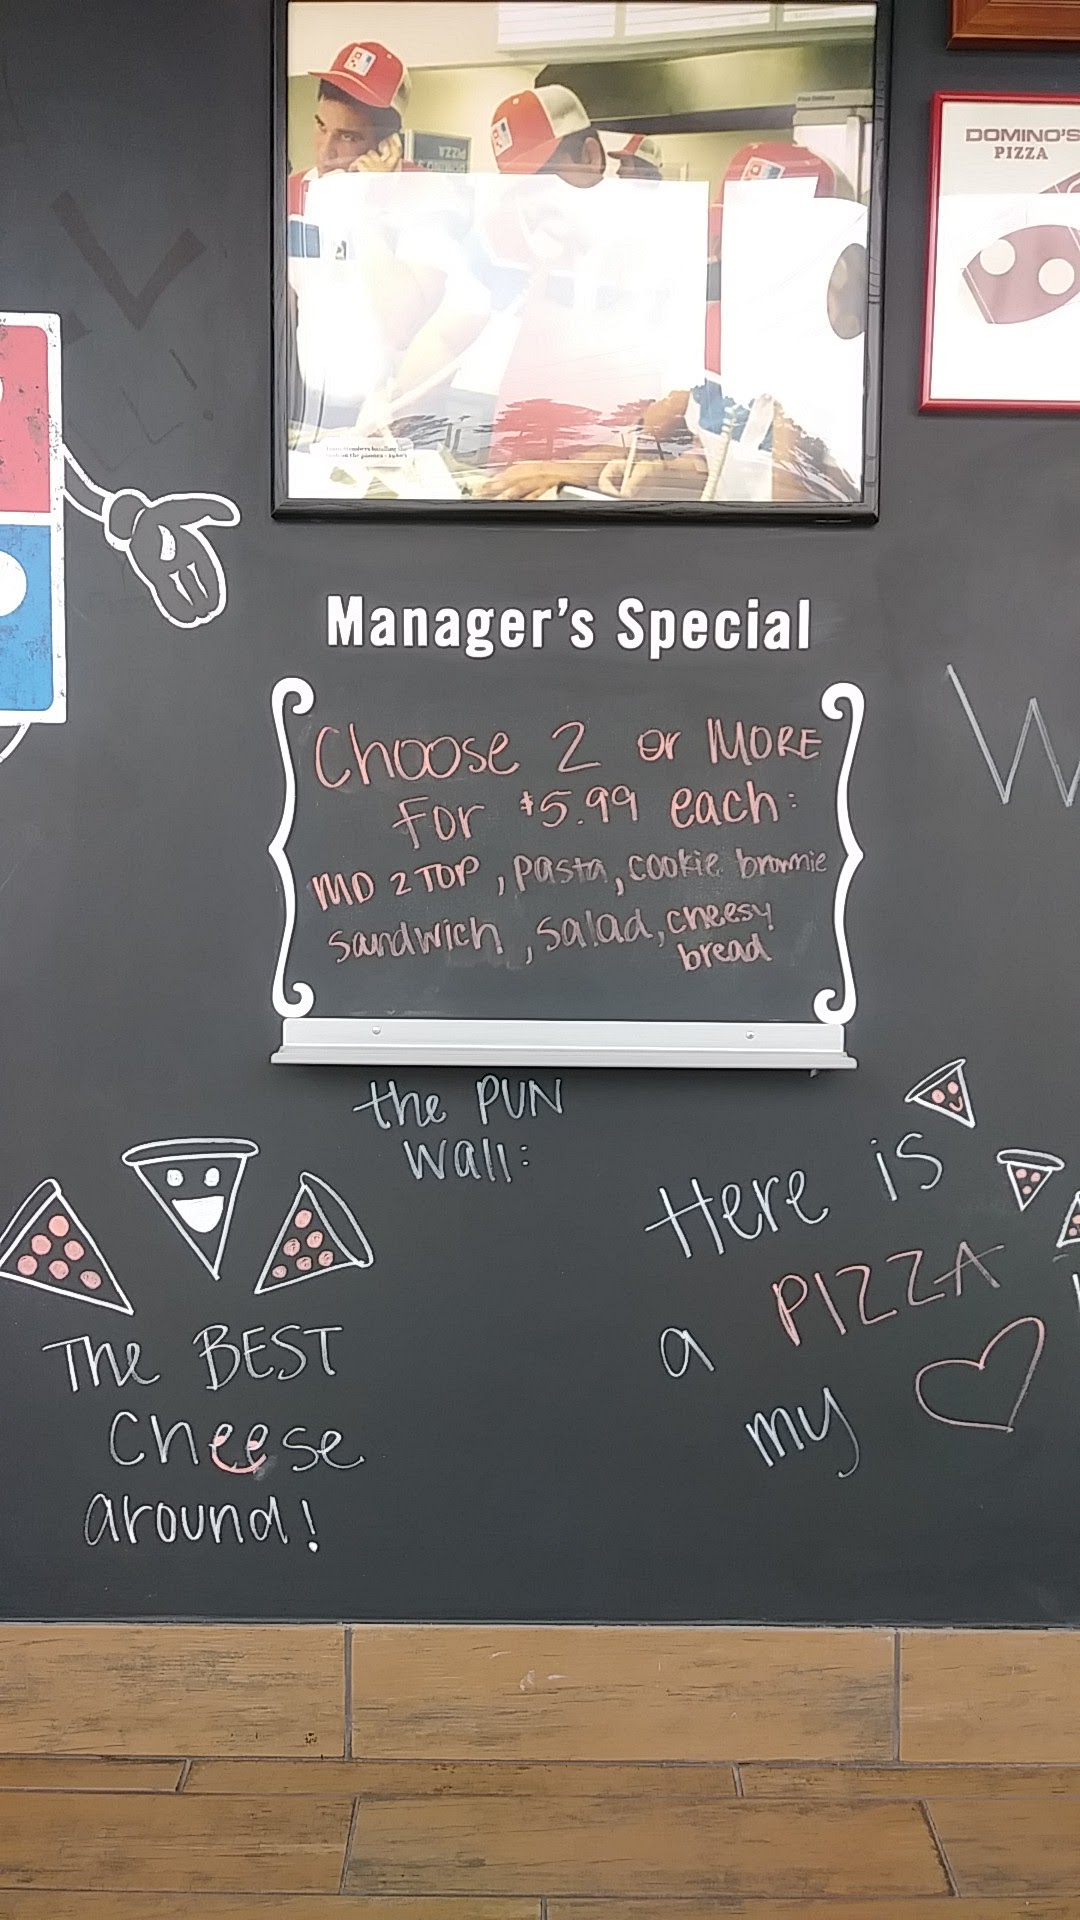 DOMINO'S
PIZZA
Manager's Special
Choose 2 or MORE
for $5.99 each:
MD 2 TOP, pasta, cookie brownie
sandwich, salad, cheesy
bread
the PUN
wall:
The BEST
cheese
around!
Here is
a PIZZA
my
W